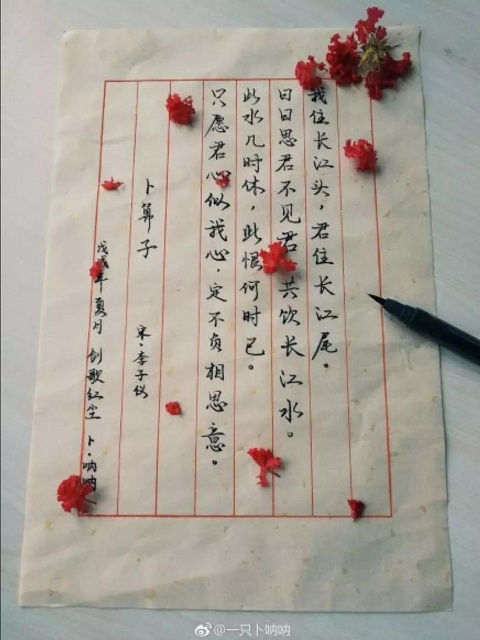 我住长江头，君住长江尾。
日日思君不见君，共饮长江水。
此水几时休，此恨何时已。
只愿君心似我心，定不负相思意。
卜算子
宋·李之仪
戊戌年夏月 剑歌红尘 卜·呐呐
@一只卜呐呐